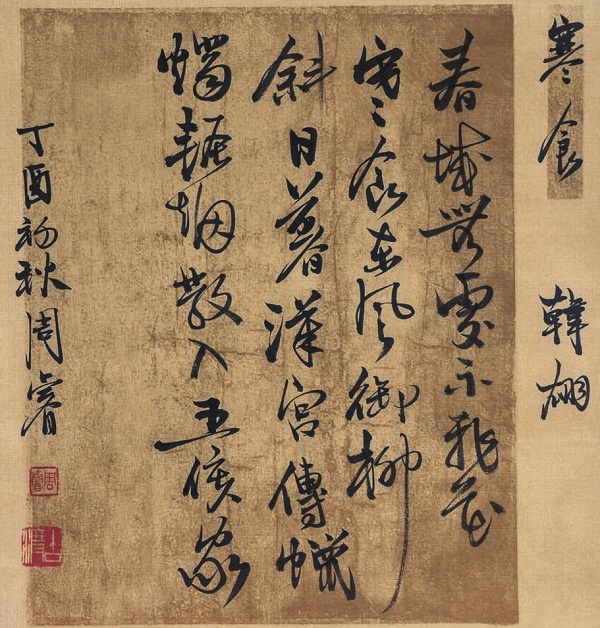 寒食 韓翃
春城無處不飛花
寒食東風御柳
斜日暮漢宮傳蠟
燭輕烟散入五侯家
丁酉初秋周睿
周睿